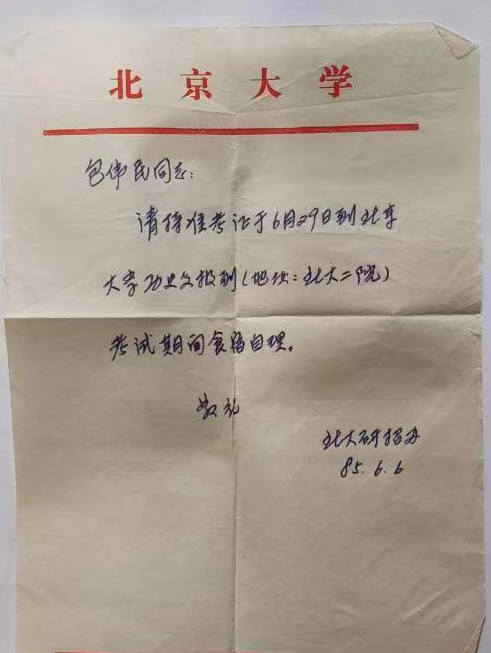 北京大学
包伟民同志:
请持准考证于6月29日到北京
大学历史系报到(地址:北大二院)
考试期间食宿自理。
敬礼
北大研招办
85.6.6